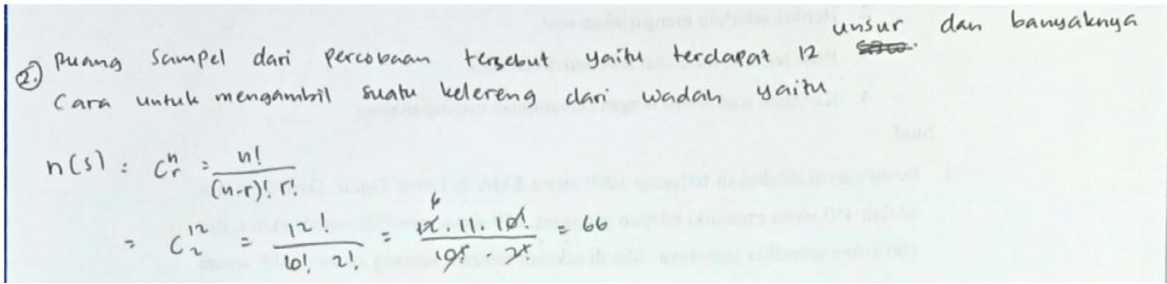 ② Ruang Sampel dari percobaan tersebut yaitu terdapat 12 unsur dan banyaknya
Cara untuk mengambil suatu kelereng dari wadah yaitu
n(s) = C^n_r = n! / (n-r)! r!
= C^12_2 = 12! / 10! 2! = 12 . 11 . 10! / 10! . 2! = 66